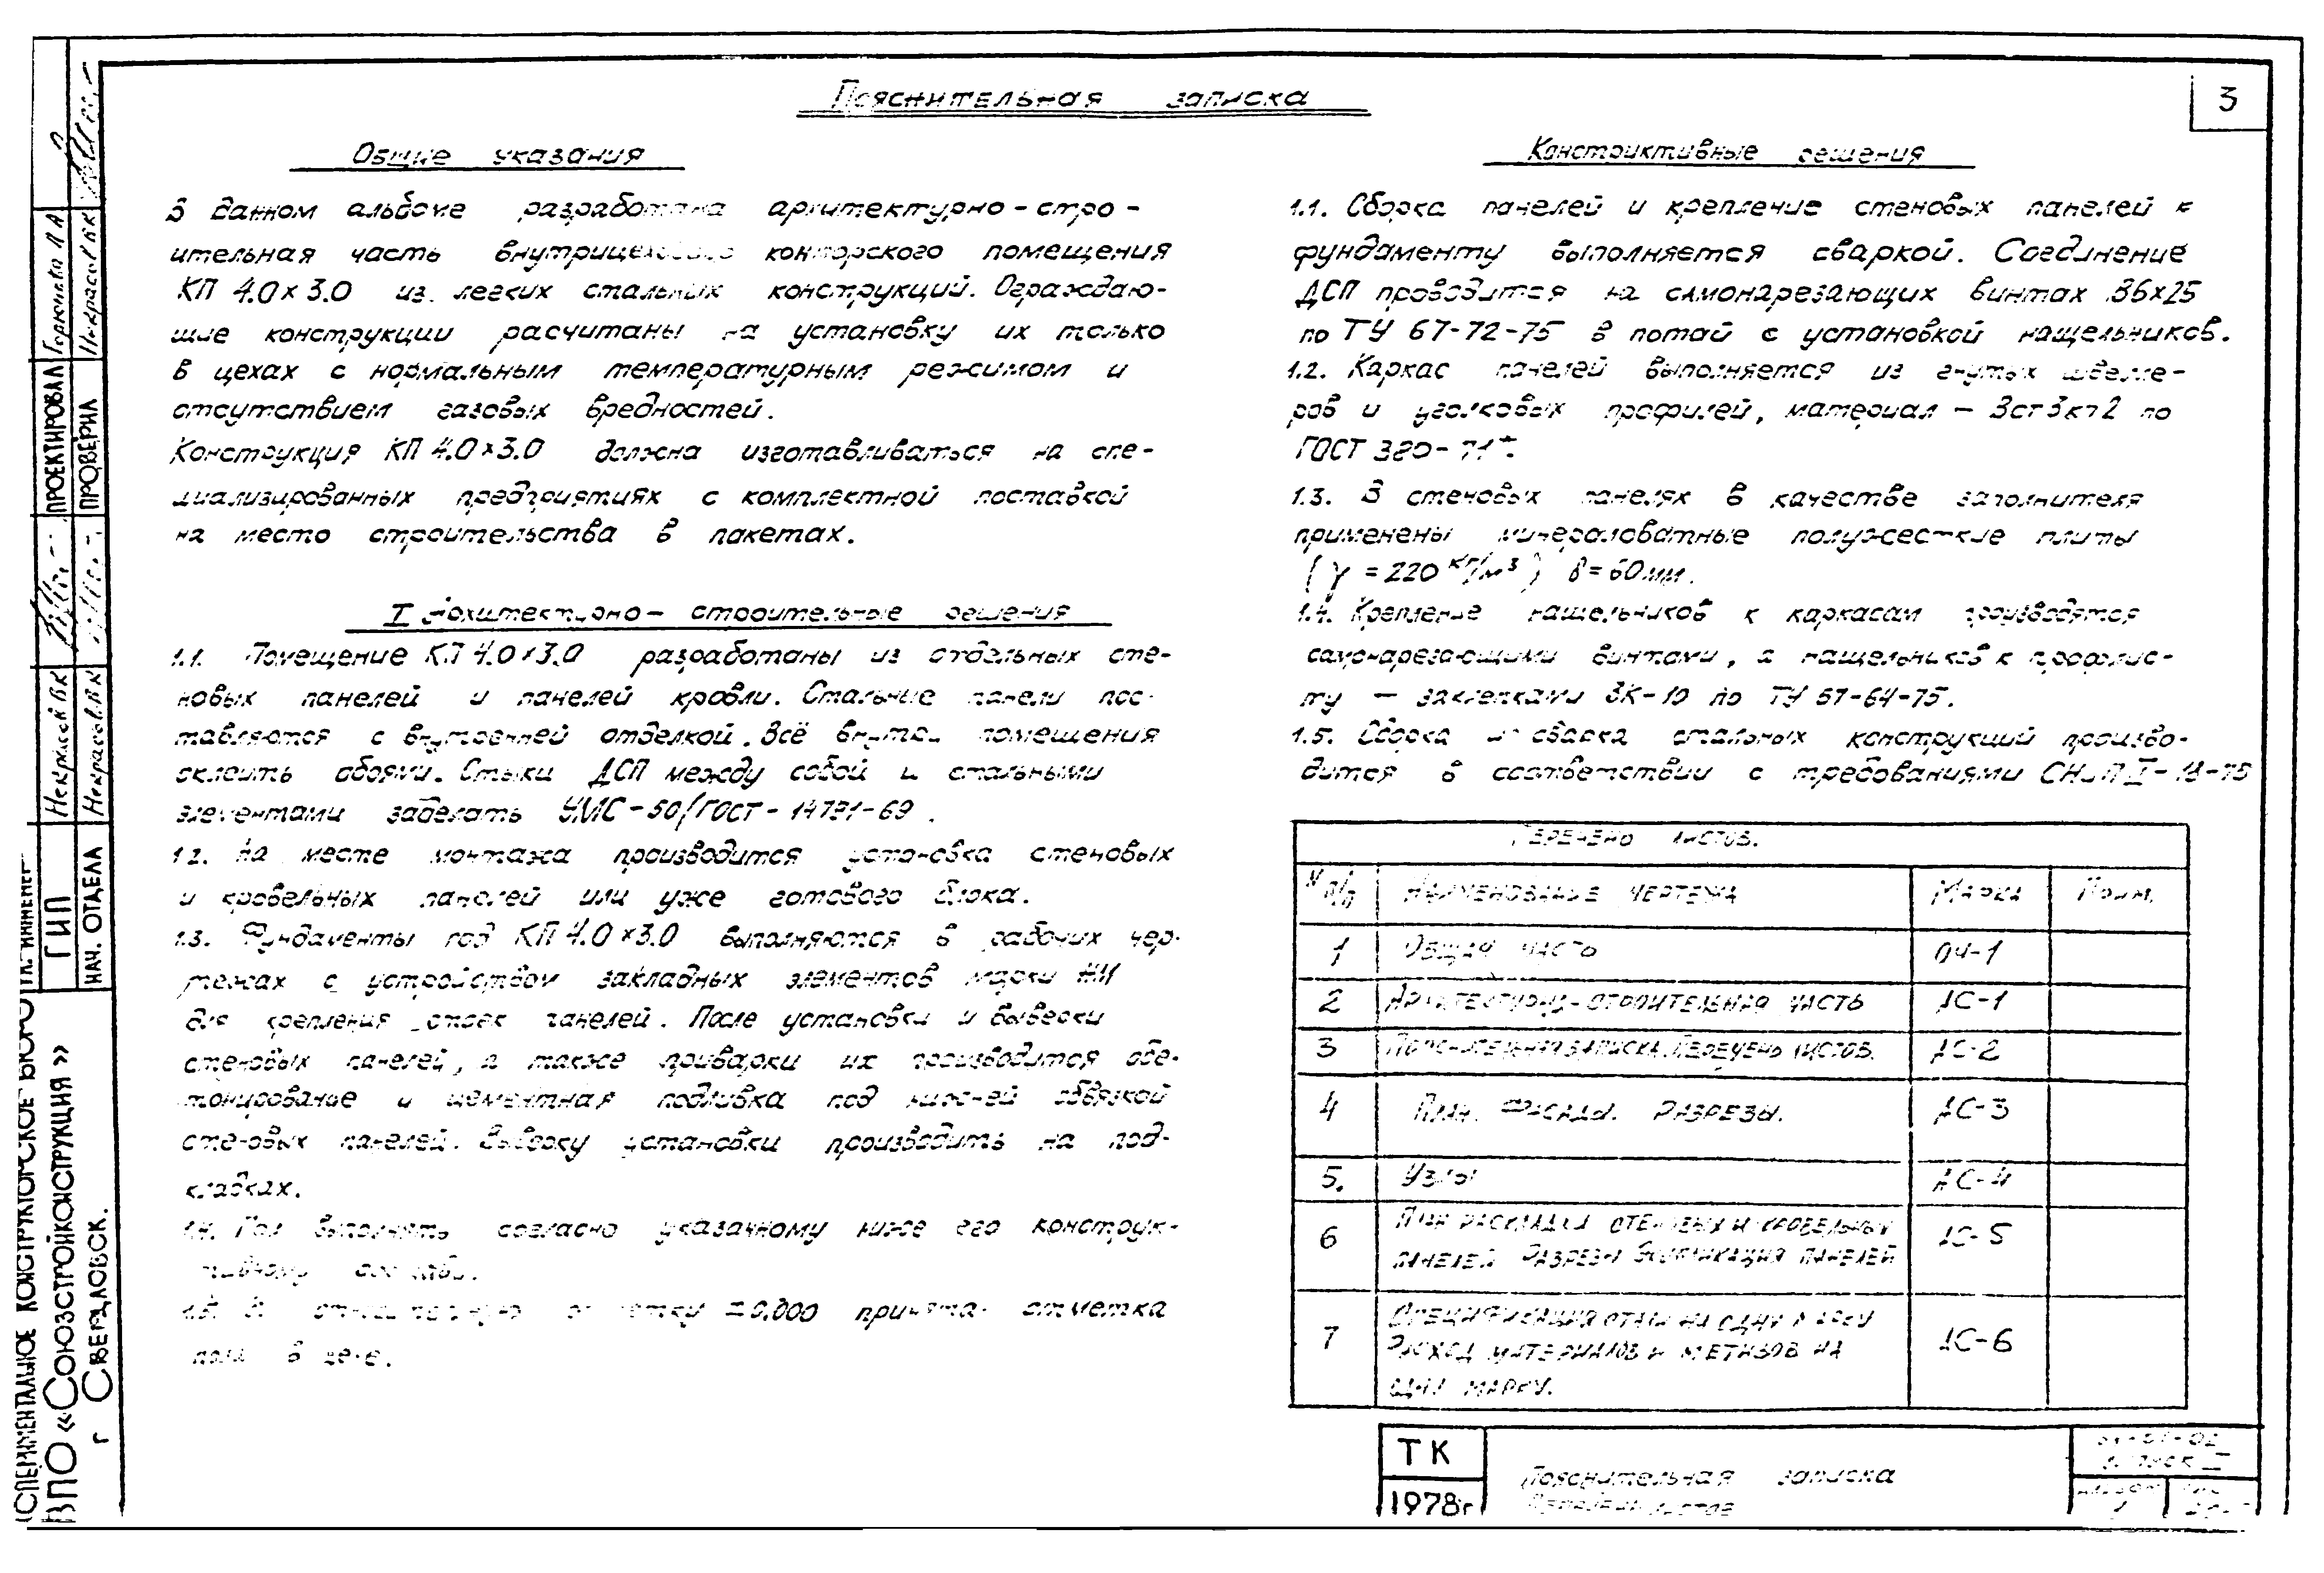 Пояснительная записка
3
Общие указания
В данном альбоме разработана архитектурно-стро-
ительная часть внутрицехового конторского помещения
КП 4.0×3.0 из легких стальных конструкций. Ограждаю-
щие конструкции расчитаны на установку их только
в цехах с нормальным температурным режимом и
отсутствием газовых вредностей.
Конструкция КП 4.0×3.0 должна изготавливаться на спе-
циализированных предприятиях с комплектной поставкой
на место строительства в пакетах.
I Архитектурно-строительные решения
1.1. Помещение КП 4.0×3.0 разработаны из отдельных сте-
новых панелей и панелей кровли. Стальные панели пос-
тавляются с внутренней отделкой. Всё внутри помещения
оклеить обоями. Стыки ДСП между собой и стальными
элементами заделать УМС-50/ГОСТ-14791-69.
1.2. На месте монтажа производится установка стеновых
и кровельных панелей или уже готового блока.
1.3. Фундаменты под КП 4.0×3.0 выполняются в рабочих чер-
тежах с устройством закладных элементов марки
для крепления панелей. После установки и выверки
стеновых панелей, а также приварки их производится обе-
тонирование и цементная подливка под нижней обвязкой
стеновых панелей. Выверку установки производить на под-
кладках.
1.4. Пол выполнять согласно указанному ниже его конструк-
тивному
1.5. За отметку ±0.000 принята отметка
пола в цехе.
Конструктивные решения
1.1. Сборка панелей и крепление стеновых панелей к
фундаменту выполняется сваркой. Соединение
ДСП проводится на самонарезающих винтах В6×25
по ТУ 67-72-75 в потай с установкой нащельников.
1.2. Каркас панелей выполняется из гнутых швелле-
ров и уголковых профилей, материал - Вст3кп2 по
ГОСТ 380-71*.
1.3. В стеновых панелях в качестве заполнителя
применены минераловатные полужесткие плиты
(γ = 220 кг/м³) δ=60мм.
1.4. Крепление нащельников к каркасам производятся
самонарезающими винтами, а нащельников к профлис-
ту - заклепками ЗК-10 по ТУ 67-64-75.
1.5. Сборка и сварка стальных конструкций произво-
дится в соответствии с требованиями СНиП III-18-75
Перечень листов.
N п/п Наименование чертежа Марка Прим.
1 Общая часть ОЧ-1
2 Архитектурно-строительная часть АС-1
3 Пояснительная записка. Перечень листов. АС-2
4 План. Фасады. Разрезы. АС-3
5. Узлы АС-4
6 План раскладки стеновых и кровельных
панелей. Разрезы. Спецификация панелей АС-5
7 Спецификация стали на одну марку
Расход материалов и метизов на
одну марку. АС-6
ТК
1978г
Пояснительная записка
Перечень листов
Выпуск II
ГИП Некрасов В К
НАЧ. ОТДЕЛА Некрасов В К
ПРОЕКТИРОВАЛ
ПРОВЕРИЛ Некрасов В К
КОНСТРУКТОРСКОЕ БЮРО
ВПО «Союзстройконструкция»
г Свердловск.